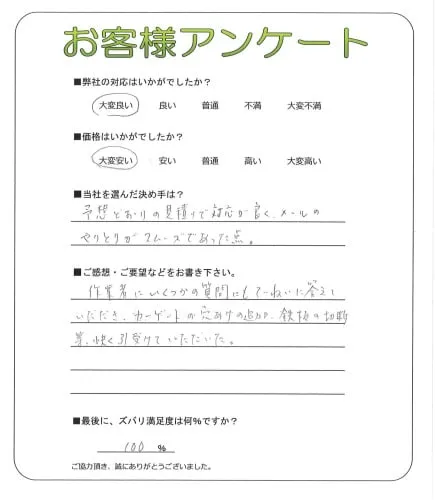 お客様アンケート
■弊社の対応はいかがでしたか？
大変良い 良い 普通 不満 大変不満
■価格はいかがでしたか？
大変安い 安い 普通 高い 大変高い
■当社を選んだ決め手は？
予想どおりの見積りで対応が良く、メールの
やりとりがスムーズであった点。
■ご感想・ご要望などをお書き下さい。
作業者にいくつかの質問にもてーねいに答えて
いただき、カーゲートの穴あけの追加、鉄板の切断
等、快く引受けていただいた。
■最後に、ズバリ満足度は何％ですか？
100 ％
ご協力頂き、誠にありがとうございました。